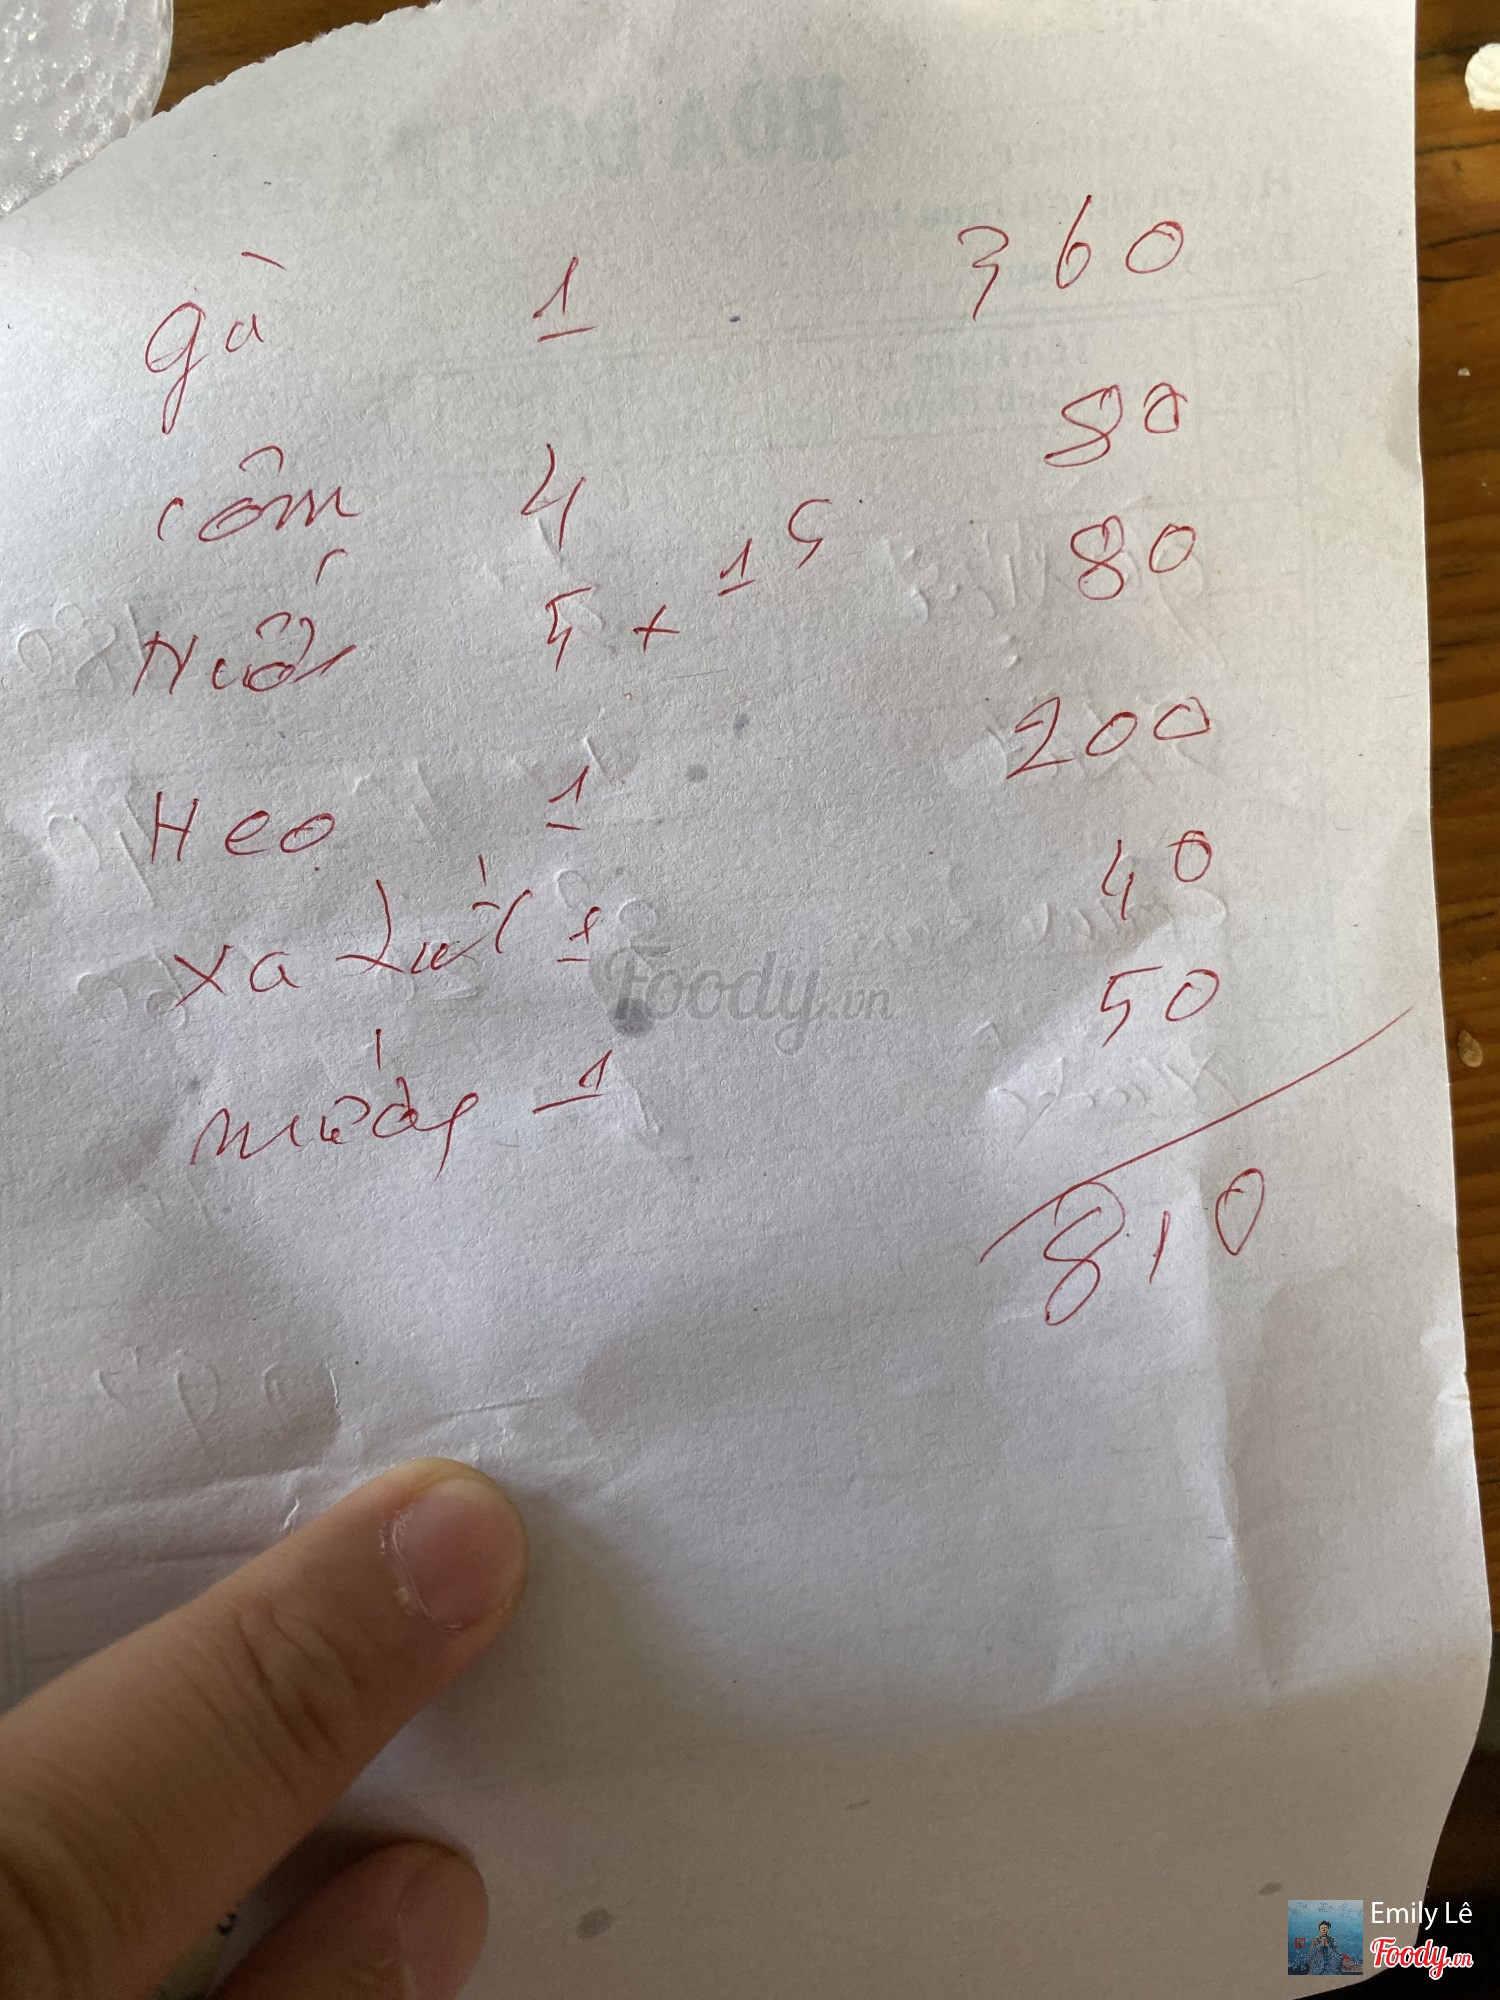 gà 1 360
cơm 4 80
Nước 5 + 15 80
Heo 1 200
xa 1 40
nướng 1 50
810
Foody.vn
Emily Lê
Foody.vn